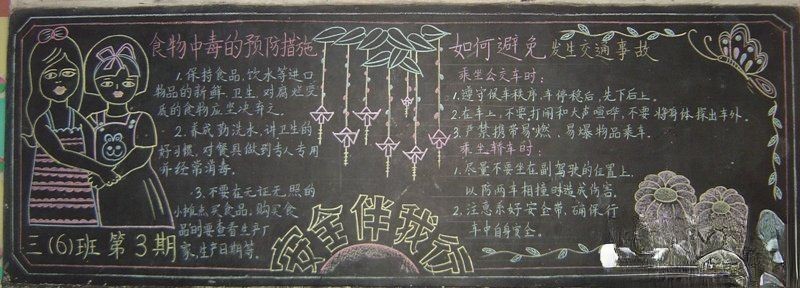 食物中毒的预防措施
1.保持食品、饮水等进口
物品的新鲜、卫生,对腐烂变
质的食物应坚决弃之。
2.养成勤洗水,讲卫生的
好习惯,对餐具做到专人专用
并经常消毒。
3.不要在无证无照的
小摊点买食品,购买食
品时要查看生产厂
家、生产日期等。
三(6)班 第3期
安全伴我行
如何避免发生交通事故
乘坐公交车时:
1.遵守候车秩序,车停稳后,先下后上。
2.在车上,不要打闹和大声喧哗,不要将身体探出车外。
3.严禁携带易燃、易爆物品乘车。
乘坐轿车时:
1.尽量不要坐在副驾驶的位置上,
以防两车相撞时造成伤害。
2.注意系好安全带,确保行
车中自身安全。